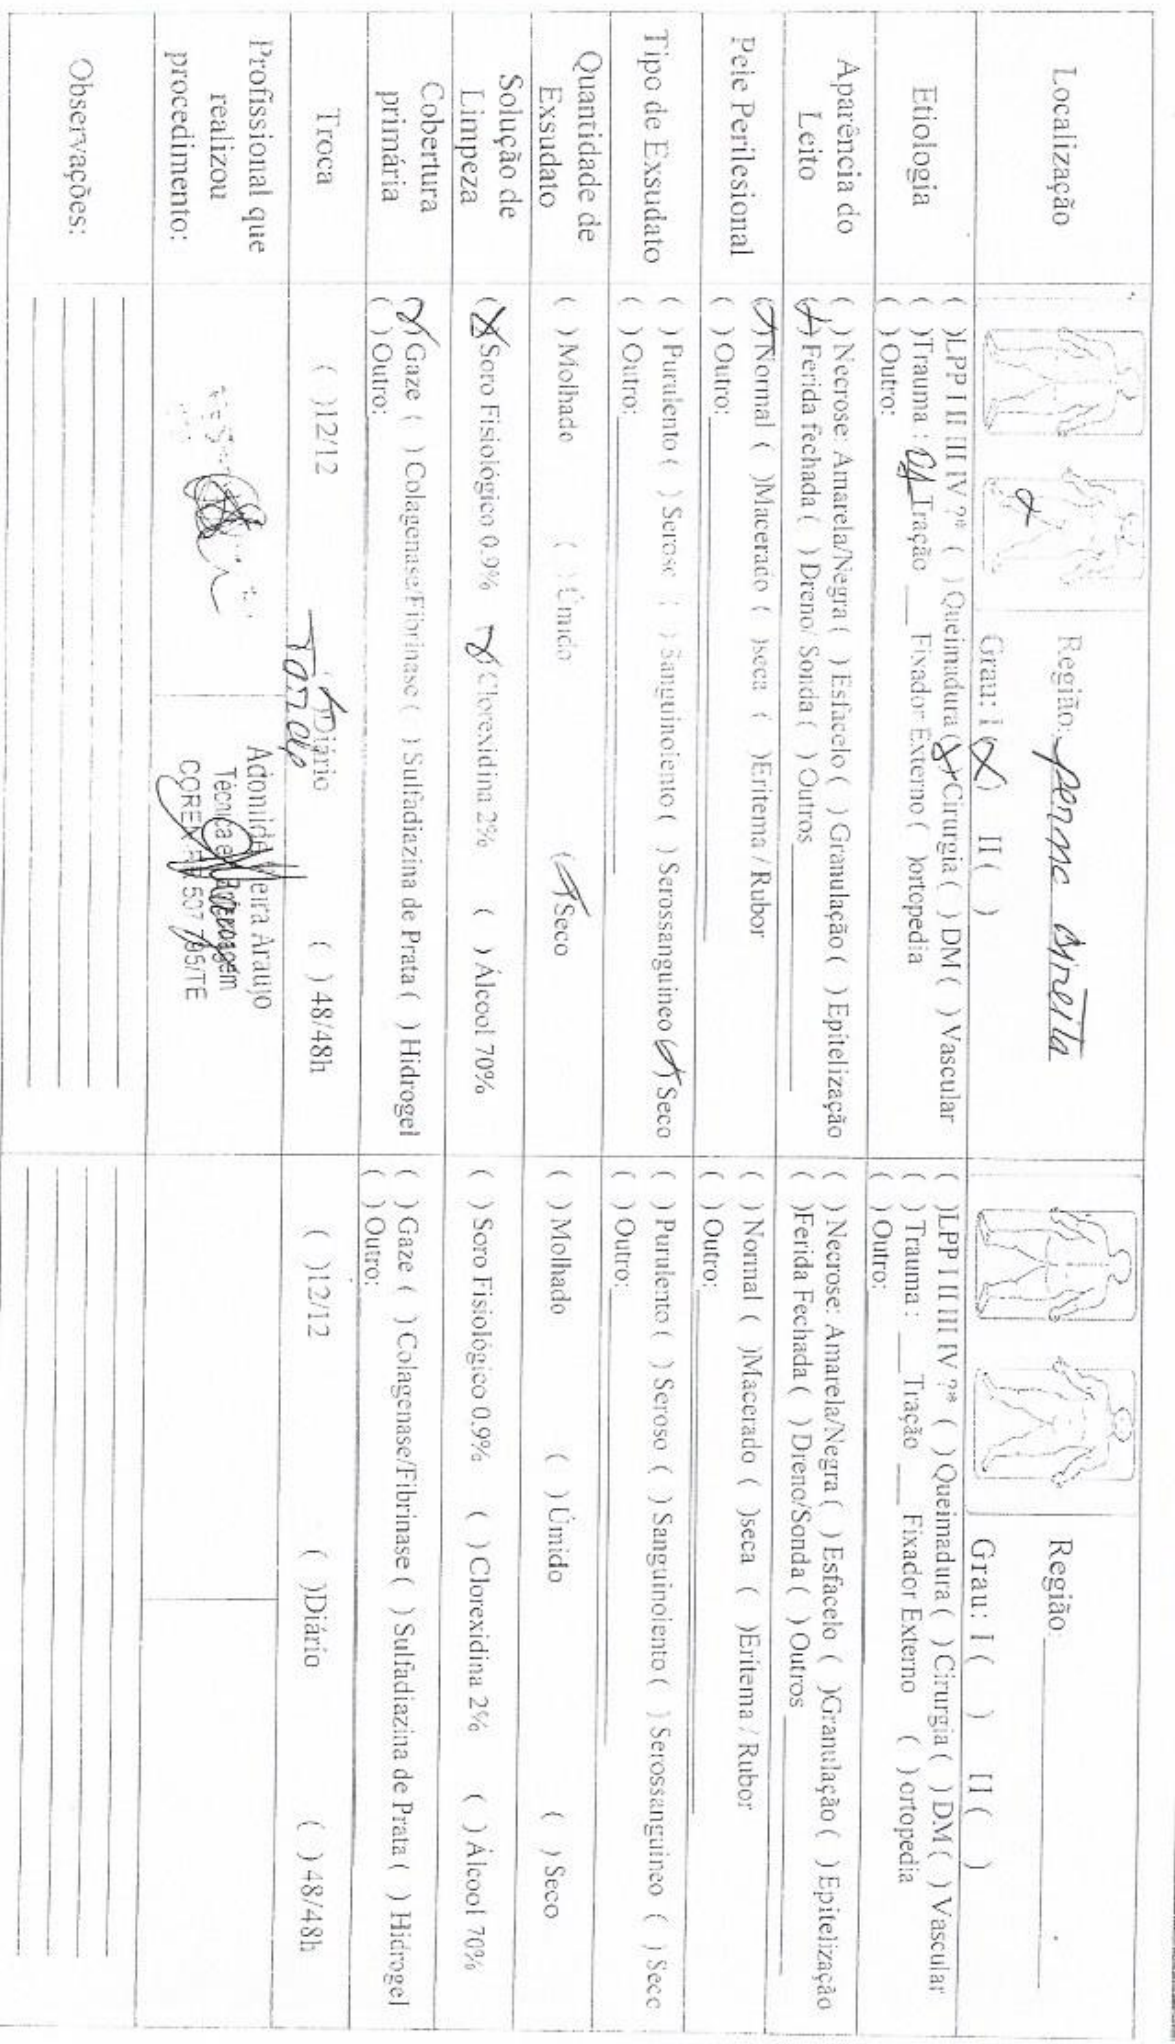 Localização
Região: perna direita
Grau: I (X) II ( )
Região:
Grau: I ( ) II ( )
Etiologia
( )LPP I II III IV ?* ( ) Queimadura (X) Cirurgia ( ) DM ( ) Vascular
( )Trauma : Tração ___ Fixador Externo ( )ortopedia
( ) Outro:
( )LPP I II III IV ?* ( ) Queimadura ( ) Cirurgia ( ) DM ( ) Vascular
( ) Trauma : ___ Tração ___ Fixador Externo ( ) ortopedia
( ) Outro:
Aparência do
Leito
( ) Necrose: Amarela/Negra ( ) Esfacelo ( ) Granulação ( ) Epitelização
(X) Ferida fechada ( ) Dreno/ Sonda ( ) Outros
( ) Necrose: Amarela/Negra ( ) Esfacelo ( )Granulação ( ) Epitelização
( )Ferida Fechada ( ) Dreno/Sonda ( ) Outros
Pele Perilesional
(X)Normal ( )Macerado ( )seca ( )Eritema / Rubor
( ) Outro:
( ) Normal ( )Macerado ( )seca ( )Eritema / Rubor
( ) Outro:
Tipo de Exsudato
( ) Purulento ( ) Seroso ( ) Sanguinolento ( ) Serossanguineo (X) Seco
( ) Outro:
( ) Purulento ( ) Seroso ( ) Sanguinolento ( ) Serossanguineo ( ) Seco
( ) Outro:
Quantidade de
Exsudato
( ) Molhado ( ) Úmido (X) Seco
( ) Molhado ( ) Úmido ( ) Seco
Solução de
Limpeza
(X) Soro Fisiológico 0.9% (X) Clorexidina 2% ( ) Álcool 70%
( ) Soro Fisiológico 0.9% ( ) Clorexidina 2% ( ) Álcool 70%
Cobertura
primária
(X) Gaze ( ) Colagenase/Fibrinase ( ) Sulfadiazina de Prata ( ) Hidrogel
( ) Outro:
( ) Gaze ( ) Colagenase/Fibrinase ( ) Sulfadiazina de Prata ( ) Hidrogel
( ) Outro:
Troca
( )12/12 (X)Diário ( ) 48/48h
Tarde
( )12/12 ( )Diário ( ) 48/48h
Profissional que
realizou
procedimento:
Araujo
Técnica
COREN
Observações: